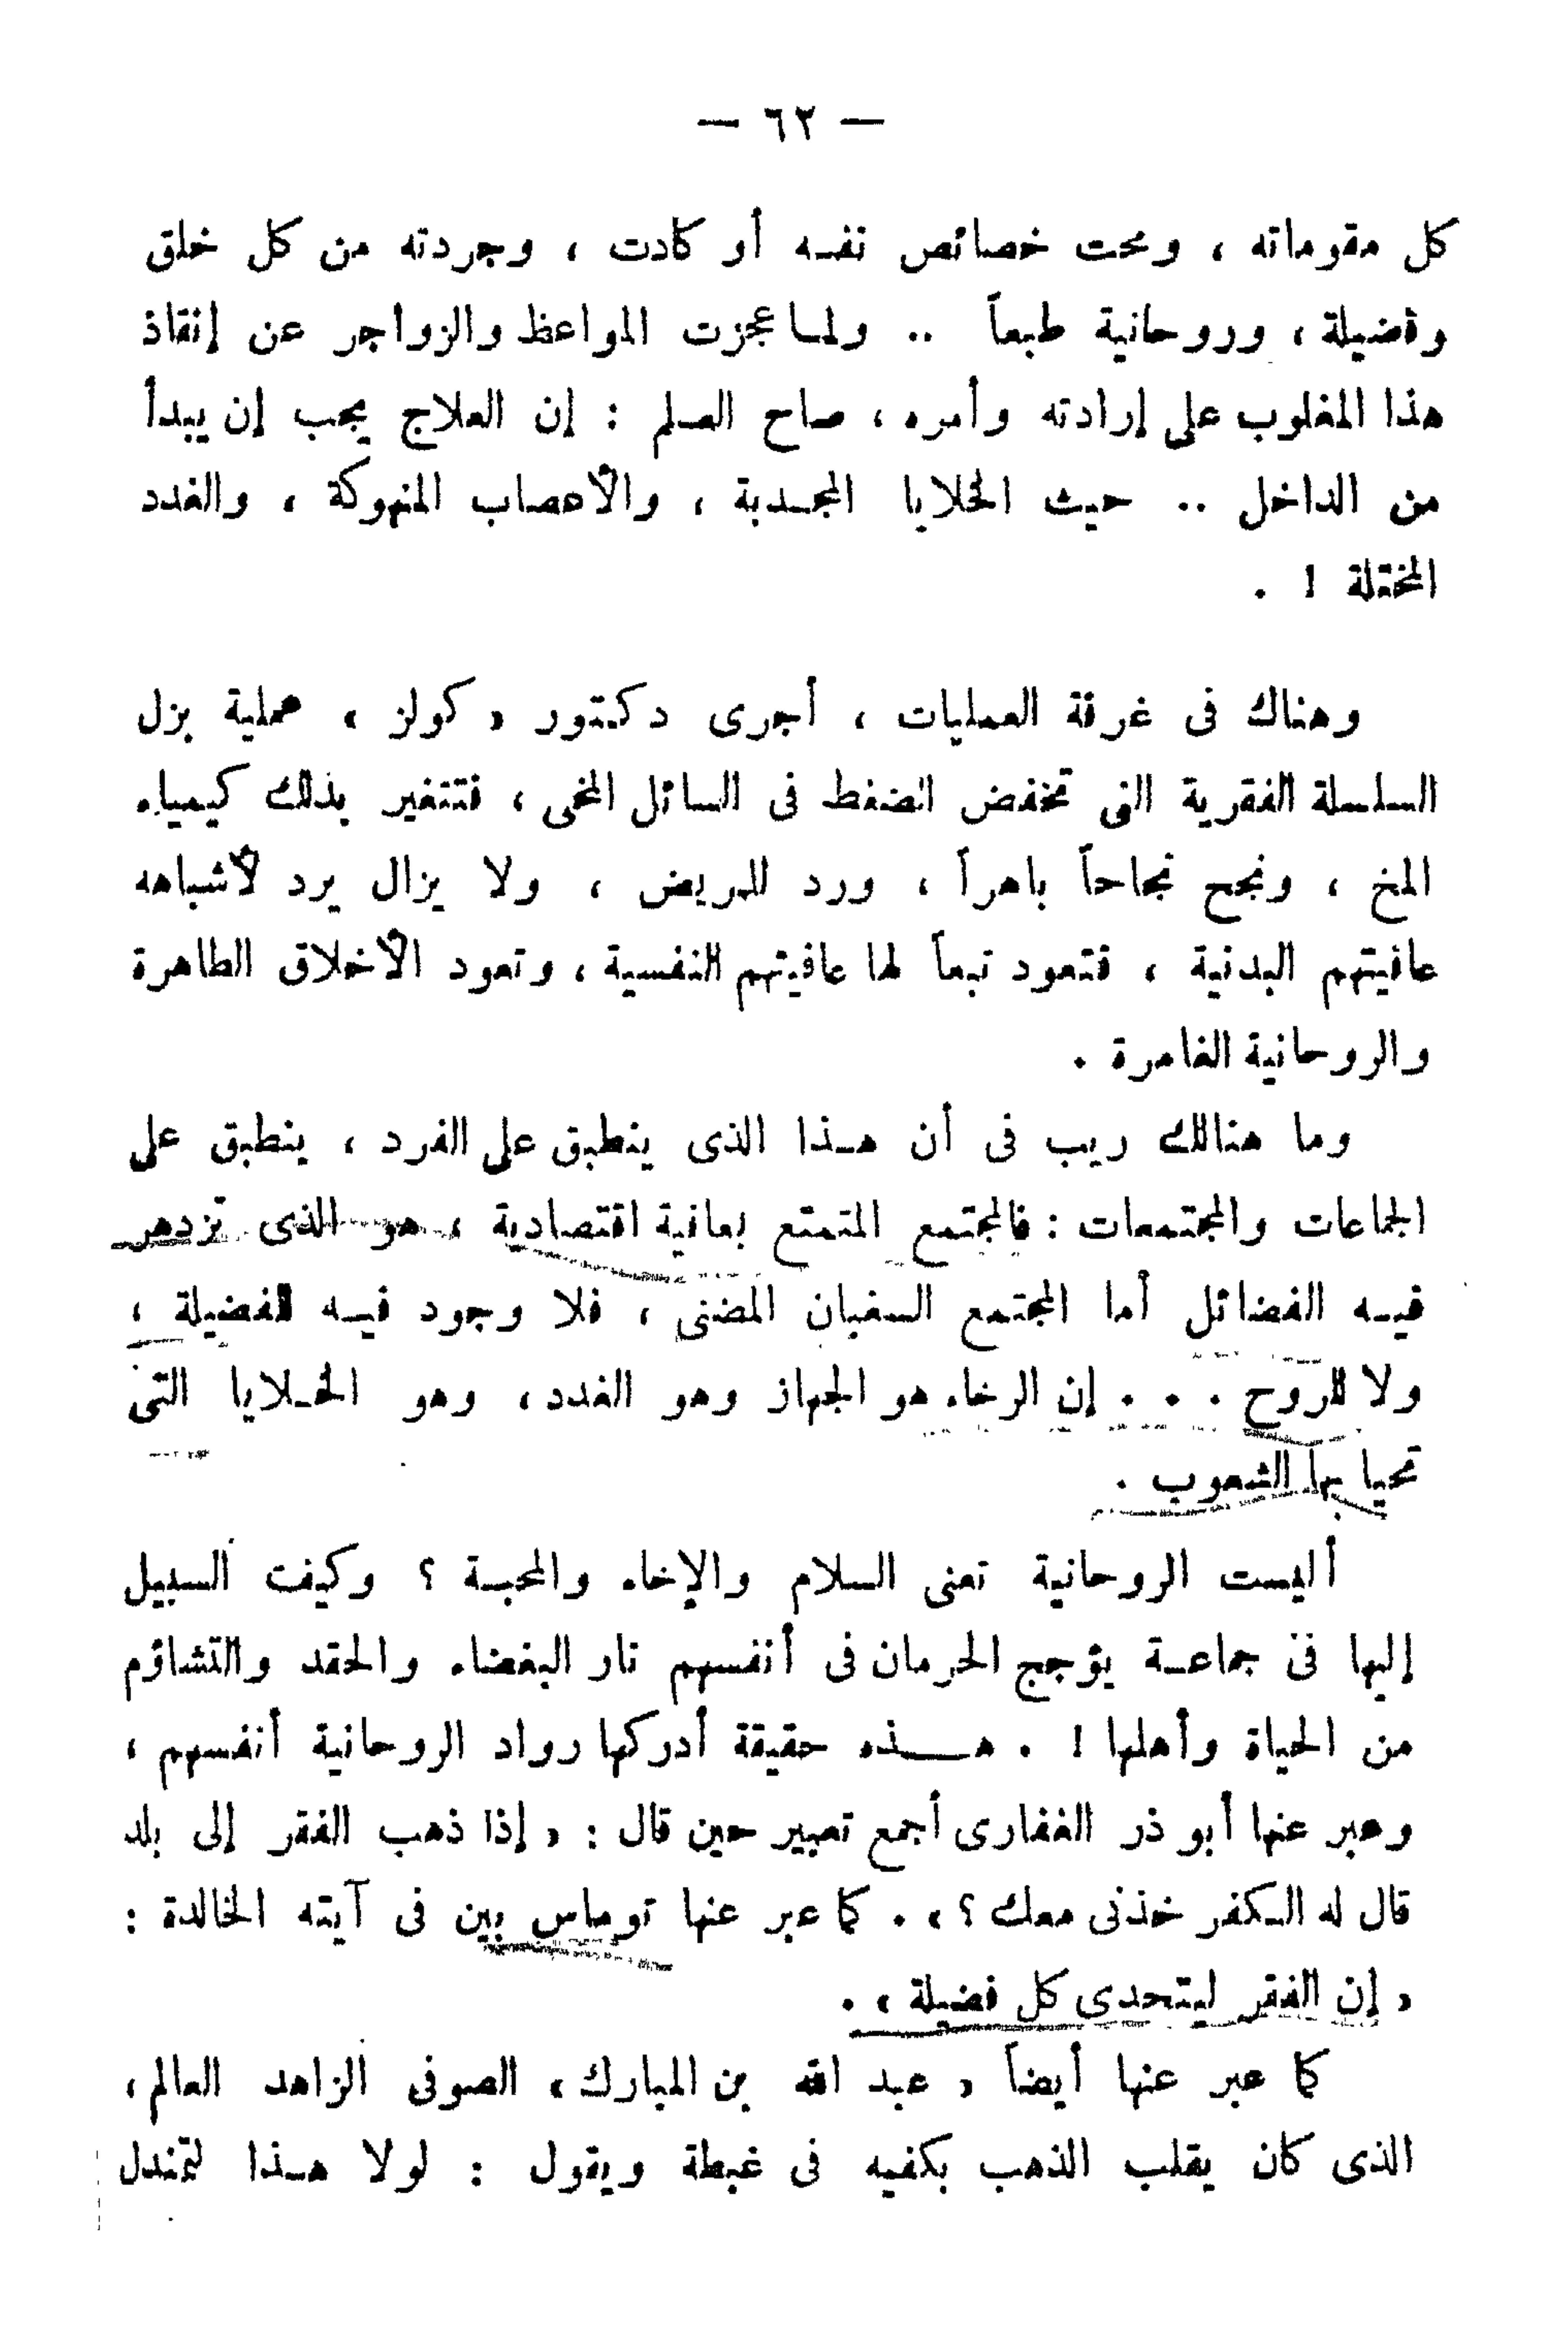 — ٦٢ —
كل مقوماته ، ومحت خصائص نفسه أو كادت ، وجردته من كل خلق
وفضيلة ، وروحانية طبعاً .. ولما عجزت المواعظ والزواجر عن إنقاذ
هذا المغلوب على إرادته وأمره ، صاح العلم : إن العلاج يجب إن يبدأ
من الداخل .. حيث الخلايا المجدبة ، والأعصاب المنهوكة ، والغدد
المختلة ! .
وهناك فى غرفة العمليات ، أجرى دكتور « كولز » عملية بزل
السلسلة الفقرية التى تخفض الضغط فى السائل المخى ، فتتغير بذلك كيمياء
المخ ، ونجح نجاحاً باهراً ، ورد للمريض ، ولا يزال يرد لأشباهه
عافيتهم البدنية ، فتعود تبعاً لها عافيتهم النفسية ، وتعود الأخلاق الطاهرة
والروحانية الغامرة .
وما هنالك ريب فى أن هذا الذى ينطبق على الفرد ، ينطبق على
الجماعات والمجتمعات : فالمجتمع المتمتع بعافية اقتصادية ، هو الذى تزدهر
فيه الفضائل أما المجتمع السغبان المضنى ، فلا وجود فيه للفضيلة ،
ولا للروح . . . إن الرخاء هو الجهاز وهو الغدد ، وهو الخلايا التى
تحيا بها الشعوب .
أليست الروحانية تعنى السلام والإخاء والمحبة ؟ وكيف السبيل
إليها فى جماعة يؤجج الحرمان فى أنفسهم نار البغضاء والحقد والتشاؤم
من الحياة وأهلها ! . هذه حقيقة أدركها رواد الروحانية أنفسهم ،
وعبر عنها أبو ذر الغفارى أجمع تعبير حين قال : « إذا ذهب الفقر إلى بلد
قال له الكفر خذنى معك ؟ » . كما عبر عنها توماس بين فى آيته الخالدة :
« إن الفقر ليتحدى كل فضيلة » .
كما عبر عنها أيضاً « عبد الله بن المبارك » الصوفى الزاهد العالم ،
الذى كان يقلب الذهب بكفيه فى غبطة ويقول : لولا هذا لتمندل